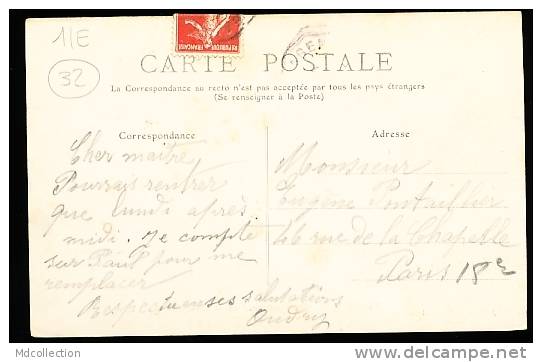 11E
32
REPUBLIQUE FRANÇAISE
CARTE POSTALE
La Correspondance au recto n'est pas acceptée par tous les pays étrangers
(Se renseigner à la Poste)
Correspondance
Cher maitre
Pourrais rentrer
que lundi après
midi. Je compte
sur Paul pour me
remplacer
Respectueuses salutations
Adresse
Monsieur
Eugène Pontaillier
46 rue de la Chapelle
Paris 18e
Mdcollection
delcampe.net